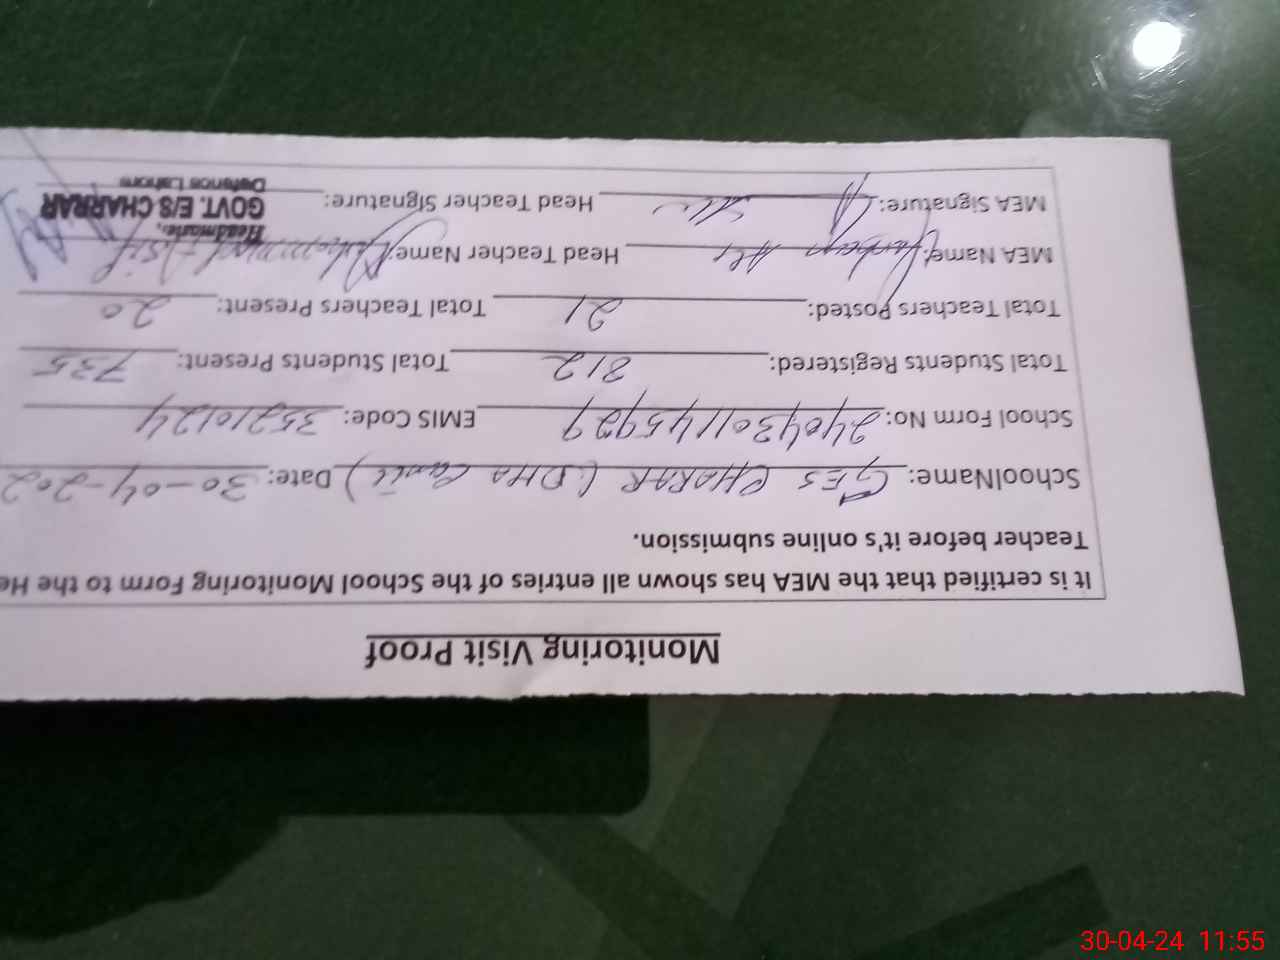 Monitoring Visit Proof
It is certified that the MEA has shown all entries of the School Monitoring Form to the He
Teacher before it's online submission.
SchoolName: GES CHARAR (DHA Cantt) Date: 30-04-202
School Form No: 2404301145929 EMIS Code: 35210124
Total Students Registered: 812 Total Students Present: 735
Total Teachers Posted: 21 Total Teachers Present: 20
MEA Name: Ali Head Teacher Name: Muhammad Asif
MEA Signature: Head Teacher Signature:
Headmaster,
GOVT. E/S CHARRAR
Defence Lahore
30-04-24 11:55